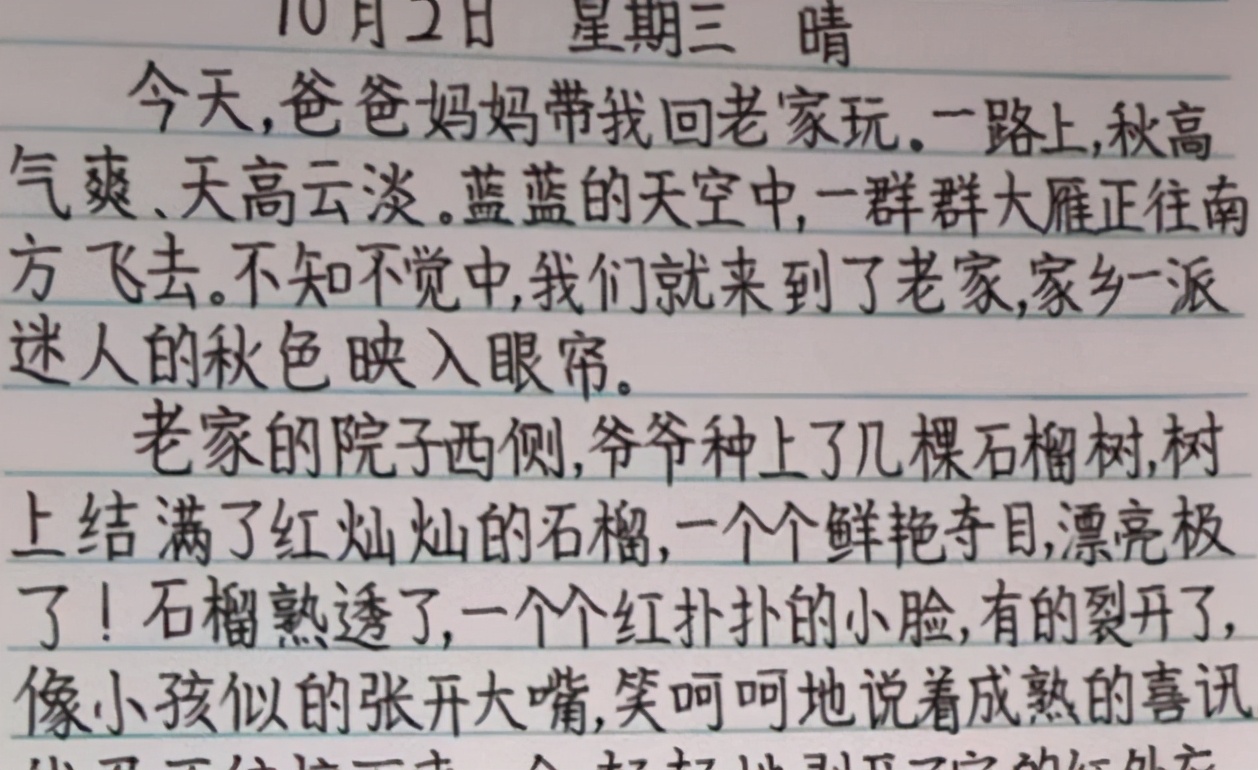 10月2日 星期三 晴
今天,爸爸妈妈带我回老家玩。一路上,秋高
气爽、天高云淡。蓝蓝的天空中,一群群大雁正往南
方飞去。不知不觉中,我们就来到了老家,家乡一派
迷人的秋色映入眼帘。
老家的院子西侧,爷爷种上了几棵石榴树,树
上结满了红灿灿的石榴,一个个鲜艳夺目,漂亮极
了!石榴熟透了,一个个红扑扑的小脸,有的裂开了,
像小孩似的张开大嘴,笑呵呵地说着成熟的喜讯